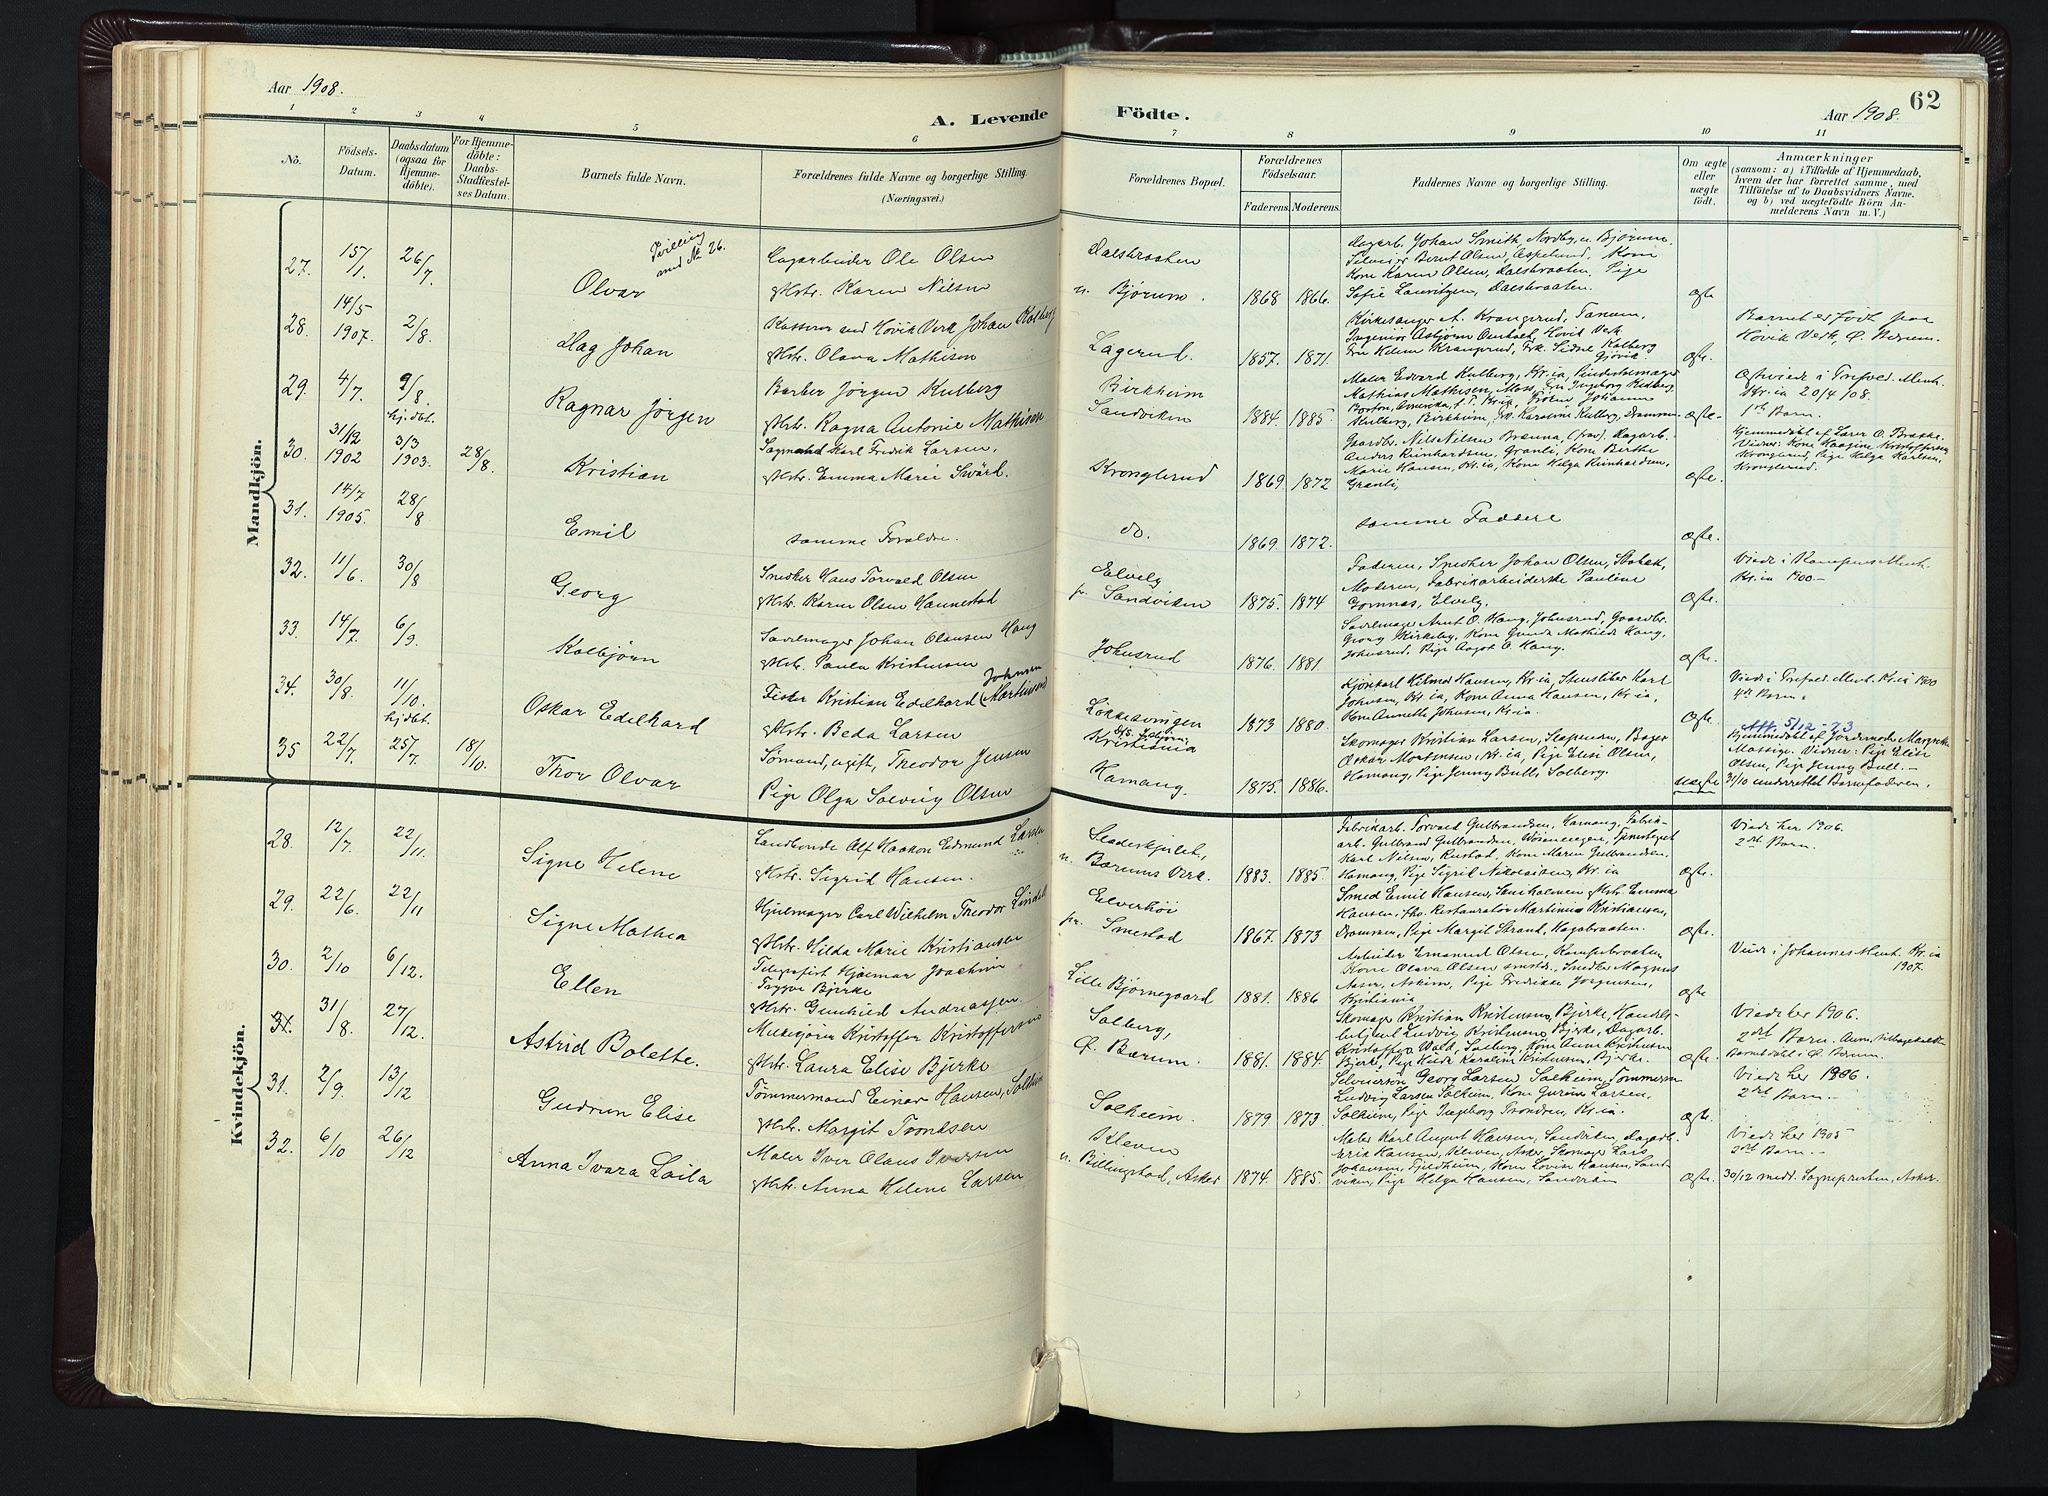 Aar 1908.
A. Levende Födte.
Aar 1908.
62
1 2 3 4 5 6 7 8 9 10 11
No.
Födsels-
Datum.
Daabsdatum
(ogsaa for
Hjemme-
döbte).
For Hjemme-
döbte:
Daabs-
Stadfæstel-
ses Datum.
Barnets fulde Navn.
Forældrenes fulde Navne og borgerlige Stilling.
(Næringsvei.)
Forældrenes Bopæl.
Forældrenes
Födselsaar.
Faderens.
Moderens.
Faddernes Navne og borgerlige Stilling.
Om ægte
eller
uægte
født.
Anmærkninger
(saasom: a) i Tilfælde af Hjemmedaab,
hvem der har forrettet samme, med
Tilföielse af to Daabsvidners Navne.
og b) ved uægtefödte Börn An-
melderens Navn m. V.)
Mandkjön.
27. 15/1. 26/7.
Tvilling
med No 26.
Olvar
Dagarbeider Ole Olsen
Hstr. Karen Nilsen
Dalsbraaten
u. Bjørum.
1868 1866.
Dagarb. Johan Smith, Nordby, u. Bjørum.
Bernt Olsen, Aspelund, Kone
Kone Karen Olsen, Dalsbraaten, Pige
Sofie Lauritzen, Dalsbraaten.
Ægte
28. 14/5 1907. 2/8.
Dag Johan
Kasserer ved Høvik Verk Johan Kolberg
Hstr. Olava Mathisen
Løgerud.
1857. 1871.
Kirkesanger A. Krongerud, Tanum,
Ingeniør Asbjørn Høvik Verk
Fru Helene Krangerud, Frk. Kolberg
Gjøvik.
Ægte.
Barnet er født paa
Høvik Verk, Ø. Bærum.
29. 4/7. 9/8.
Ragnar Jørgen
Barber Jørgen Kulberg
Hstr. Ragna Antonie Mathisen
Birkheim
Sandviken
1884. 1885.
Maler Edvard Kulberg, Kr.ia,
Mathias Mathisen, Moss, Fru Ingeborg
Boston, Amerika,
Kulberg, Birkheim, Frk. Karoline Kulberg, Drammen
Ægte.
Kr.ia 20/4 08.
1ste Barn.
30. 31/12 1902
hj. dbt.
3/3 1903. 28/8.
Kristian
Karl Fredrik Larsen,
Hstr. Emma Marie Swärd.
Kronglerud
1869. 1872
Gaardbr. Nils Nilsen Dagarb.
Anders Reinhardsen, Granli, Kone Berthe
Marie Hansen, Kr.ia, Kone Helga Reinhardsen,
Granli,
Ægte.
Hjemmedøbt af Lærer O. Brække.
Vidner: Kone Haagine Kristoffersen
Kronglerud, Pige Helga Karlsen,
Kronglerud.
31. 14/7 1905. 28/8
Emil
samme Forældre.
do.
1869. 1872.
samme Faddere
Ægte.
32. 11/6. 30/8
Georg
Snedker Hans Torvald Olsen
Hstr. Karen Olsen Hannestad
Elvely
pr. Sandviken
1875. 1874
Faderen, Snedker Johan Olsen, Stabæk,
Moderen, Fabrikarbeiderske Pauline
Gomnæs, Elvely.
Ægte.
Viede i Kampens Menh.
Kr.ia 1900.-
33. 14/7. 6/9.
Kolbjørn
Sadelmager Johan Olausen Haug
Hstr. Paula Kristensen
Johnsrud
1876. 1881.
Sadelmager Arnt O. Haug, Johnsrud, Gaardbr.
Georg Kirkeby, Kone Gunda Mathilde Haug,
Johnsrud, Pige Aagot O. Haug.
Ægte.
34. 30/8. 11/10.
Oskar Edelhard
Fisker Kristian Edelhard (Martinsen) Johnsen
Hstr. Beda Larsen
Løkkesvingen
1873 1880.
Kjørekarl Hilmar Hansen, Kr.ia, Karl
Johnsen, Kr.ia, Kone Anna Hansen, Kr.ia,
Kone Annette Johnsen, Kr.ia.
Ægte
Viede i Trefold. Menh. Kr.ia 1900
4de Barn.
35 22/7.
hj. dbt.
25/7. 18/10.
Thor Olvar
Sømand, ugift, Theodor Jensen
Pige Olga Solveig Olsen
Kristiania
Hamang.
1875. 1886.
Skomager Kristian Larsen, Bager
Oskar Mortensen, Kr.ia, Pige Elise Olsen,
Hamang, Pige Jenny Bull, Solberg.
uægte
Att. 5/12-73
Hjemmedøbt af Jordemoder
Vidner: Pige Elise
Olsen, Pige Jenny Bull.-
31/10 underrettet Barnefaderen.
Kvindekjön.
28. 12/7. 22/11.
Signe Helene
Landhandler Alf Haakon Edmund Larsen
Hstr. Sigrid Hansen.
u. Bærums Verk.
1883. 1885.
Fabrikarb. Torvald Gulbrandsen, Hamang, Fabrik-
arb. Gulbrand Gulbrandsen,
Karl Nilsen, Rustad, Kone Maren Gulbrandsen,
Hamang, Pige Sigrid Nikolaisen, Kr.ia
Ægte.
Viede her 1906.
2det Barn.
29. 22/6. 22/11
Signe Mathea
Hjulmager Carl Wilhelm Theodor Lindell
Hstr. Hilda Marie Kristiansen
Elverhöi
pr. Smestad
1867. 1873
Smed Emil Hansen, Hstr. Emma
Hansen, fhv. Restauratør Martinius Kristiansen,
Drammen, Pige Margit Strand, Hagabraaten.
Ægte.
30. 2/10 6/12.
Ellen
Telegrafist Hjalmar Joachim
Trygve Bjerke
Hstr. Gunhild Andreassen.
Lille Bjørnegaard
1881. 1886
Arbeider Emanuel Olsen,
Kone Olava Olsen smstd., Snedker Magnus
Aser, Askim, Pige Fredrikke Jørgensen,
Kristiania
Ægte
Viede i Johannes Menh. Kr.ia
1907.
31. 31/8. 27/12.
Astrid Bolette.
Kristoffer Kristoffersen
Hstr. Laura Elise Bjerke
Solberg,
Ø. Bærum.
1881. 1884.
Skomager Kristian Kristensen, Bjerke, Handels-
betjent Ludvig Kristensen, Bjerke, Dagarb.
Kristoffer Wold, Solberg, Kone Anna Kristensen
Bjerke, Pige Hulda Karoline Kristensen, Bjerke.
Ægte.
Viede her 1906.
2det Barn.
Barnet døbt i Ø. Bærum.
31. 2/9. 13/12
Gudrun Elise
Tømmermand Einar Hansen, Solheim
Hstr. Margit Trondsen
Solheim.
1879 1873.
Selveierson Georg Larsen Solheim, Tømmerm.
Ludvig Larsen Solheim, Kone Gurine Larsen,
Solheim, Pige Ingeborg Trondsen, Kr.ia.
Ægte.
Viede her 1906.
2det Barn.-
32. 6/10 26/12
Anna Ivara Laila
Maler Iver Olaus Iversen
Hstr. Anna Helene Larsen
Kleven
u. Billingstad, Asker
1874. 1885.
Maler Karl August Hansen, Sandviken, Dagarb.
Erik Hansen, Kleven, Asker, Skomager Lars
Johansen, Fjeldheim, Kone Lovise Hansen, Sand-
viken, Pige Helga Hansen, Sandviken
Ægte.
Viede her 1905
2det Barn.-
30/12 medd. Sognepresten, Asker.